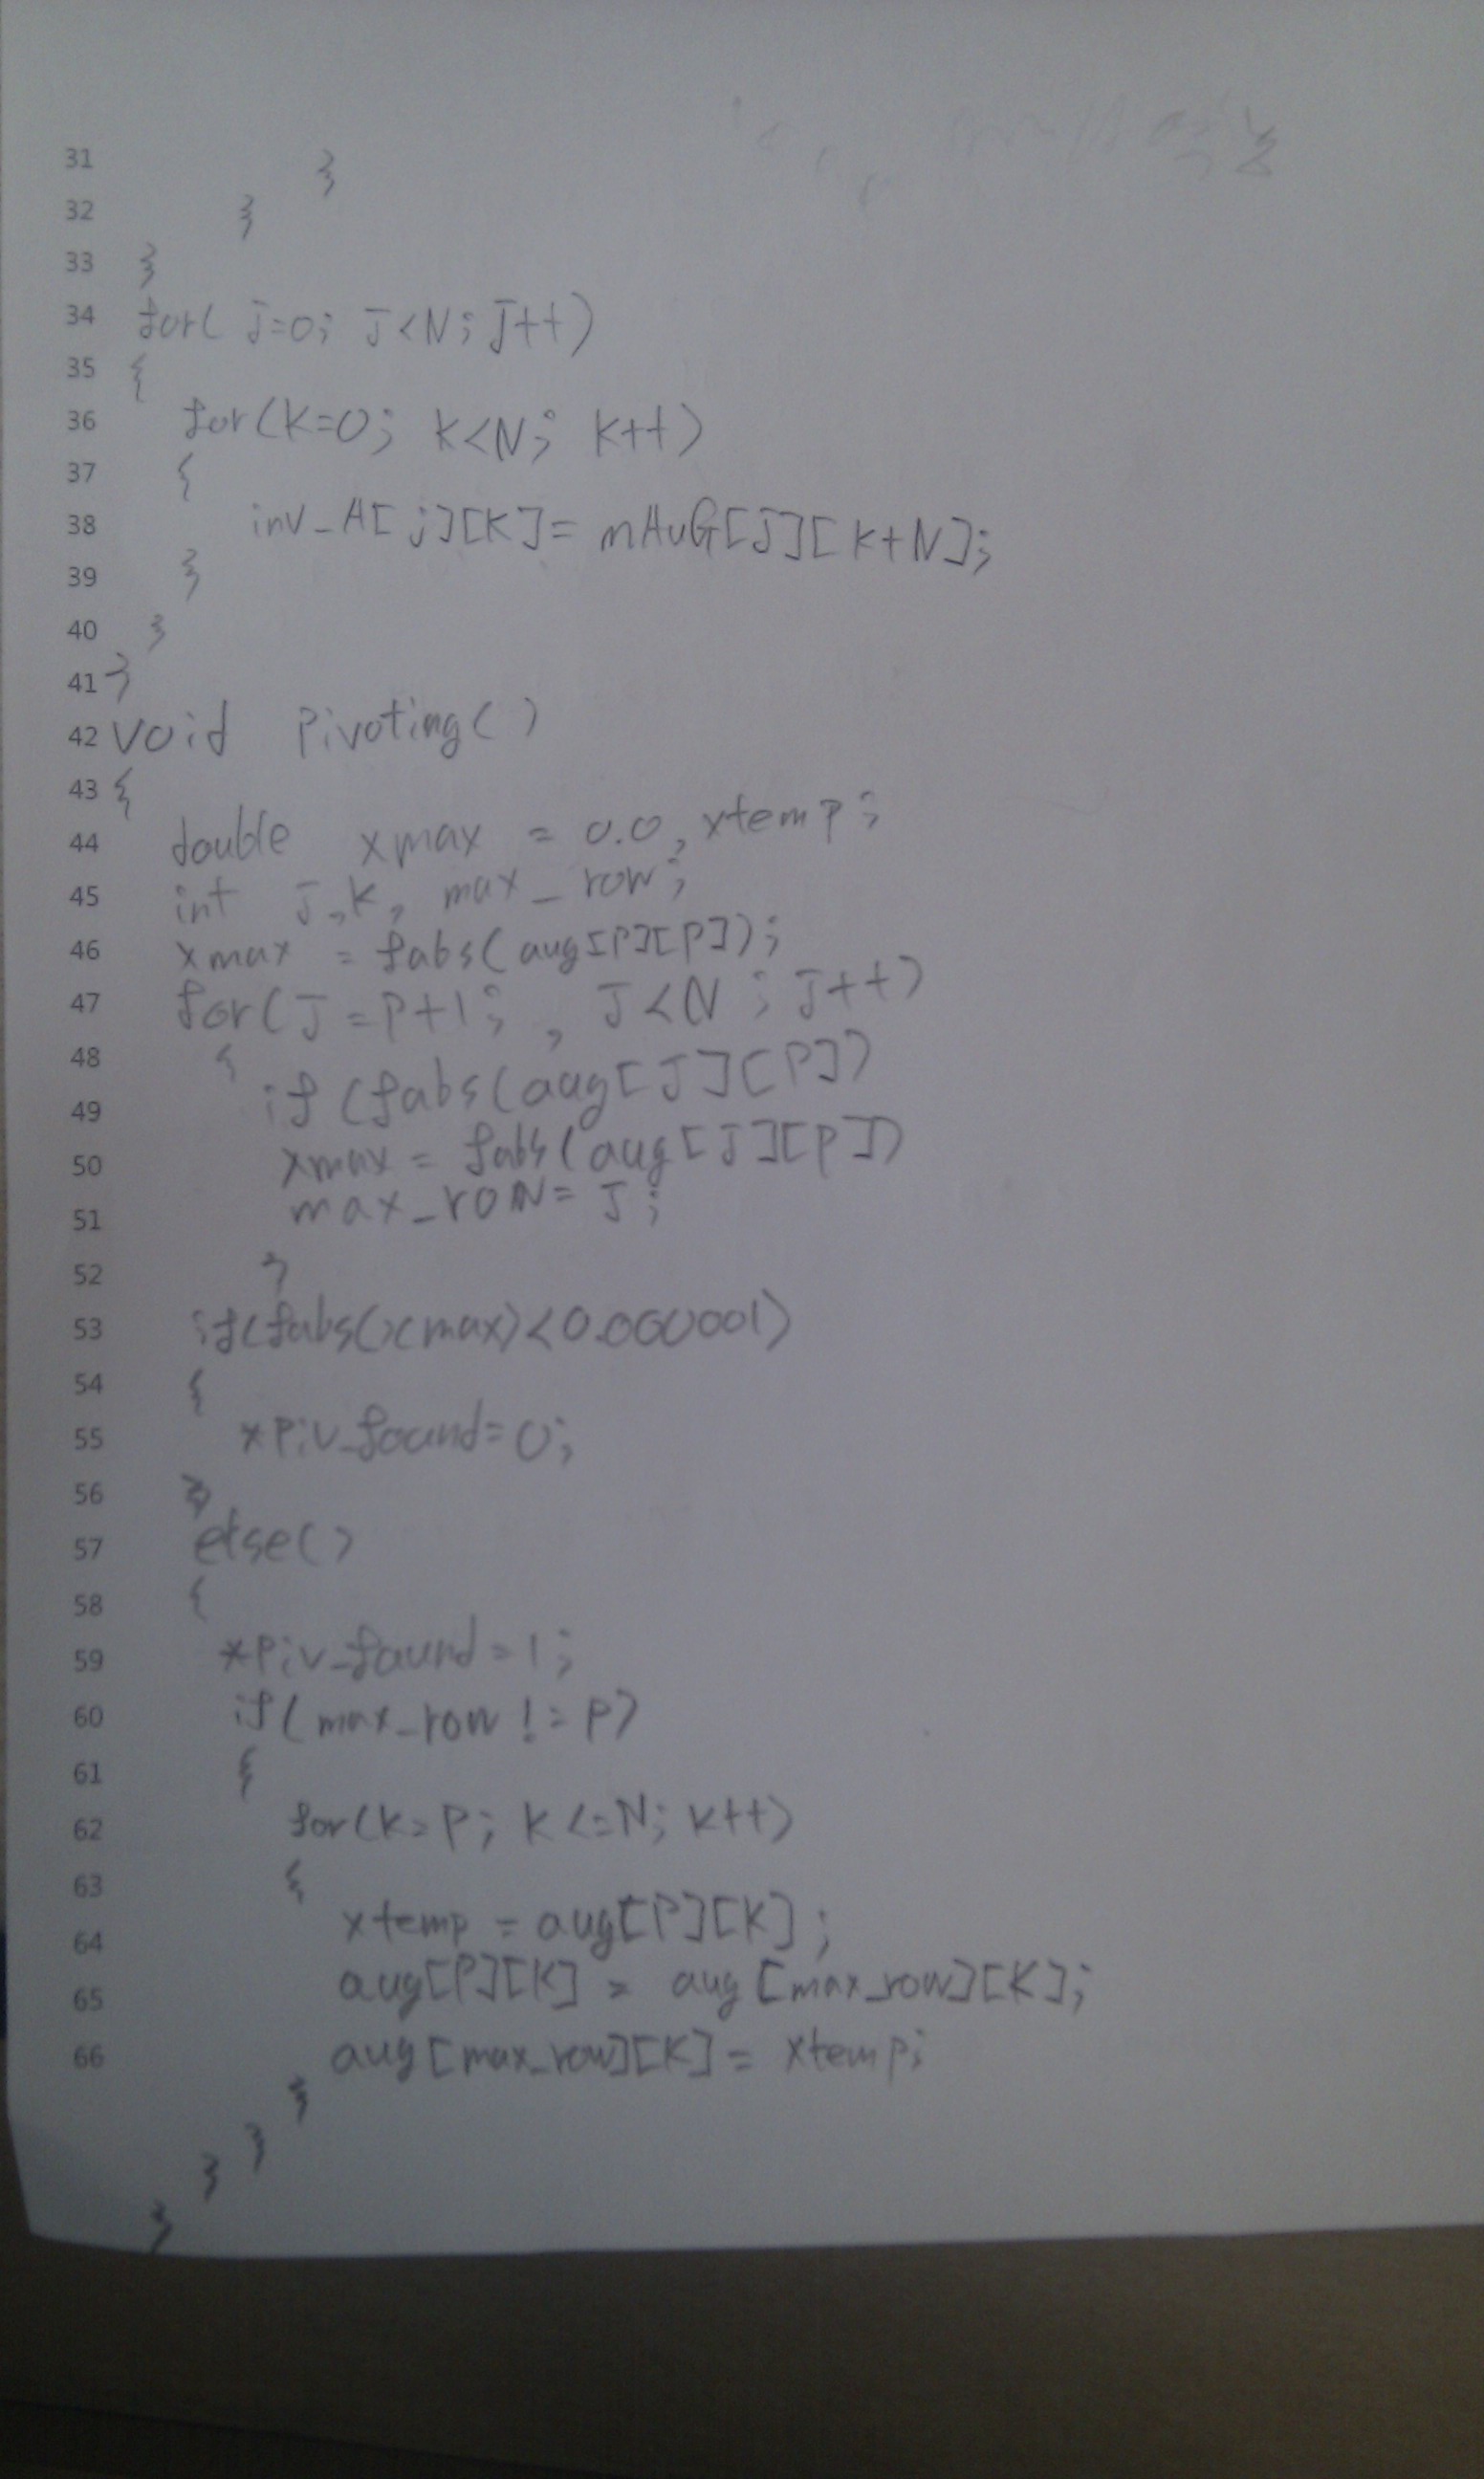 31 }
32 }
33 }
34 for( j=0; J<N; J++)
35 {
36 for(K=0; K<N; K++)
37 {
38 inv_A[j][K]= mAuG[J][K+N];
39 }
40 }
41 }
42 void Pivoting()
43 {
44 double xmax = 0.0, xtemp;
45 int J,K, max_row;
46 xmax = fabs(aug[P][P]);
47 for(J=P+1; , J<N ; J++)
48 {
49 if (fabs(aug[J][P])
50 xmax = fabs(aug[J][P])
51 max_roW= J;
52 }
53 if(fabs(xmax)<0.000001)
54 {
55 *Piv_found=0;
56 }
57 else()
58 {
59 *Piv_faund=1;
60 if(max_row != P)
61 {
62 for(K=P; K<=N; K++)
63 {
64 xtemp = aug[P][K];
65 aug[P][K] = aug[max_row][K];
66 aug[max_row][K] = xtemp;
}
}
}
}